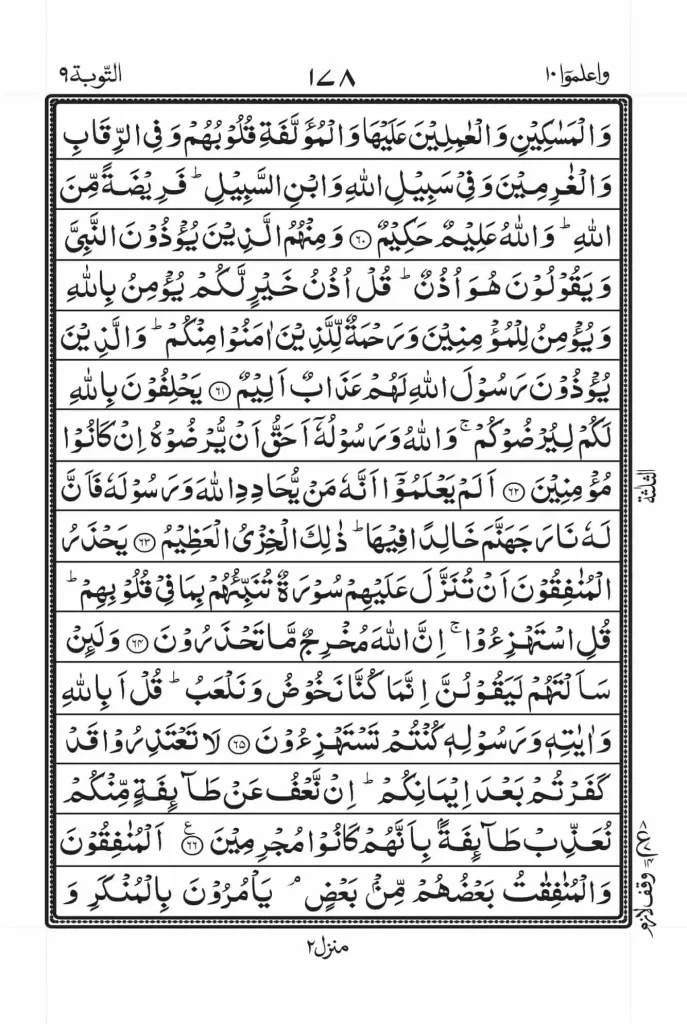 واعلموٓا ١٠
١٧٨
التّوبة ٩
وَالۡمَسٰكِيۡنِ وَالۡعٰمِلِيۡنَ عَلَيۡهَا وَالۡمُؤَلَّفَةِ قُلُوۡبُهُمۡ وَفِى الرِّقَابِ
وَالۡغٰرِمِيۡنَ وَفِىۡ سَبِيۡلِ اللّٰهِ وَابۡنِ السَّبِيۡلِ‌ؕ فَرِيۡضَةً مِّنَ
اللّٰهِ‌ؕ وَاللّٰهُ عَلِيۡمٌ حَكِيۡمٌ ﴿۶۰﴾ وَمِنۡهُمُ الَّذِيۡنَ يُؤۡذُوۡنَ النَّبِىَّ
وَيَقُوۡلُوۡنَ هُوَ اُذُنٌ‌ؕ قُلۡ اُذُنُ خَيۡرٍ لَّـكُمۡ يُؤۡمِنُ بِاللّٰهِ
وَيُؤۡمِنُ لِلۡمُؤۡمِنِيۡنَ وَرَحۡمَةٌ لِّلَّذِيۡنَ اٰمَنُوۡا مِنۡكُمۡ‌ؕ وَالَّذِيۡنَ
يُؤۡذُوۡنَ رَسُوۡلَ اللّٰهِ لَهُمۡ عَذَابٌ اَلِيۡمٌ ﴿۶۱﴾ يَحۡلِفُوۡنَ بِاللّٰهِ
لَـكُمۡ لِيُرۡضُوۡكُمۡ‌ۚ وَاللّٰهُ وَرَسُوۡلُهٗۤ اَحَقُّ اَنۡ يُّرۡضُوۡهُ اِنۡ كَانُوۡا
مُؤۡمِنِيۡنَ ﴿۶۲﴾ اَلَمۡ يَعۡلَمُوۡۤا اَنَّهٗ مَنۡ يُّحَادِدِ اللّٰهَ وَرَسُوۡلَهٗ فَاَنَّ
لَهٗ نَارَ جَهَـنَّمَ خَالِدًا فِيۡهَا‌ؕ ذٰ لِكَ الۡخِزۡىُ الۡعَظِيۡمُ ﴿۶۳﴾ يَحۡذَرُ
الۡمُنٰفِقُوۡنَ اَنۡ تُنَزَّلَ عَلَيۡهِمۡ سُوۡرَةٌ تُنَبِّئُهُمۡ بِمَا فِىۡ قُلُوۡبِهِمۡ‌ؕ
قُلِ اسۡتَهۡزِءُوۡا‌ۚ اِنَّ اللّٰهَ مُخۡرِجٌ مَّا تَحۡذَرُوۡنَ ﴿۶۴﴾ وَلَٮِٕنۡ
سَاَلۡتَهُمۡ لَيَـقُوۡلُنَّ اِنَّمَا كُنَّا نَخُوۡضُ وَنَلۡعَبُ‌ؕ قُلۡ اَبِاللّٰهِ
وَاٰيٰتِهٖ وَرَسُوۡلِهٖ كُنۡتُمۡ تَسۡتَهۡزِءُوۡنَ ﴿۶۵﴾ لَا تَعۡتَذِرُوۡا قَدۡ
كَفَرۡتُمۡ بَعۡدَ اِيۡمَانِكُمۡ‌ؕ اِنۡ نَّـعۡفُ عَنۡ طَآٮِٕفَةٍ مِّنۡكُمۡ
نُـعَذِّبۡ طَآٮِٕفَةًۢ بِاَنَّهُمۡ كَانُوۡا مُجۡرِمِيۡنَ ﴿۶۶﴾ ع اَلۡمُنٰفِقُوۡنَ
وَالۡمُنٰفِقٰتُ بَعۡضُهُمۡ مِّنۡۢ بَعۡضٍ‌ۘ يَاۡمُرُوۡنَ بِالۡمُنۡكَرِ وَ
الثلثة
وقف لازم
منزل ٢